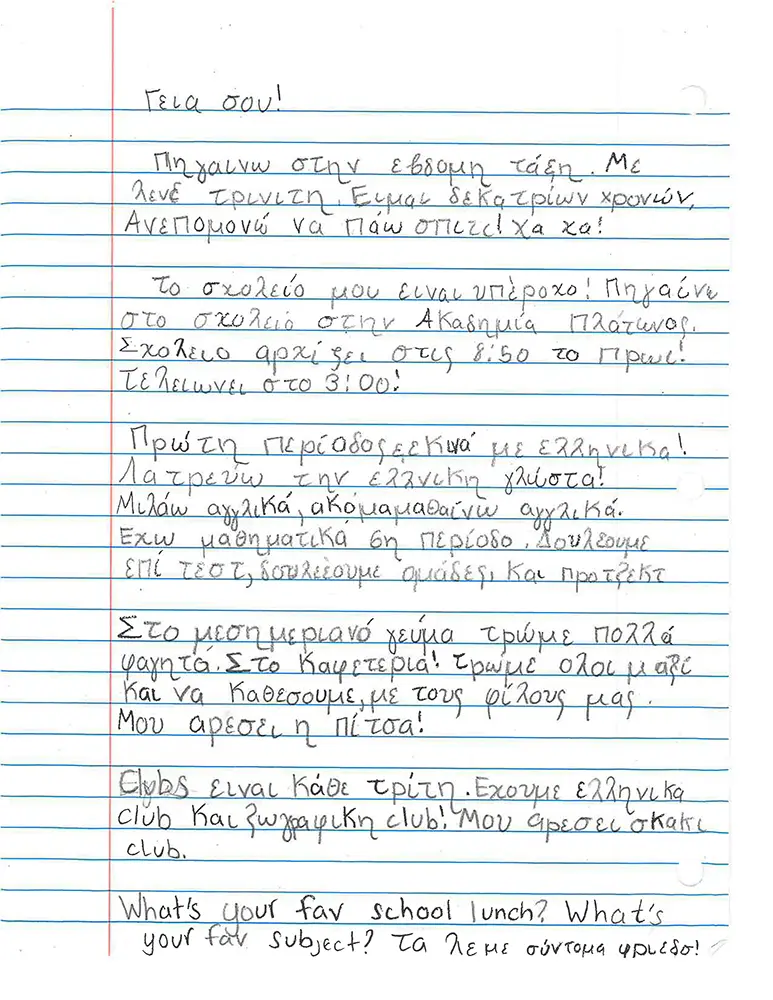 Γεια σου!
Πηγαινω στην εβδομη τάξη. Με
λενε τρινιτη. Ειμαι δεκατρίων χρονών,
Ανεπομονώ να πάω σπιτι! χα χα!
Το σχολείο μου ειναι υπέροχο! Πηγαίνω
στο σχολειο στην Ακαδημία Πλάτωνος.
Σχολειο αρχίζει στις 8:50 το πρωι!
Τελειωνει στο 3:00!
Πρώτη περίοδος ξεκινά με ελληνικα!
Λατρευω την ελλνικη γλώστα!
Μιλάω αγγλικά, ακόμα μαθαίνω αγγλικά.
Εχω μαθηματικά 6η περίοδο. Δουλέουμε
επί τεστ, δουλεέουμε ομάδες, και προτζεκτ
Στο μεσημεριανό γεύμα τρώμε πολλά
φαγητά. Στο Καφετερια! τρωμε ολοι μαζί
και να καθεσουμε, με τους φίλους μας.
Μου αρεσει η πίτσα!
Clubs ειναι κάθε τρίτη. Εχουμε ελληνικα
club και ζωγραφικη club! Μου αρεσει σκακι
club.
What's your fav school lunch? What's
your fav subject? Τα λεμε σύντομα φριεδσ!